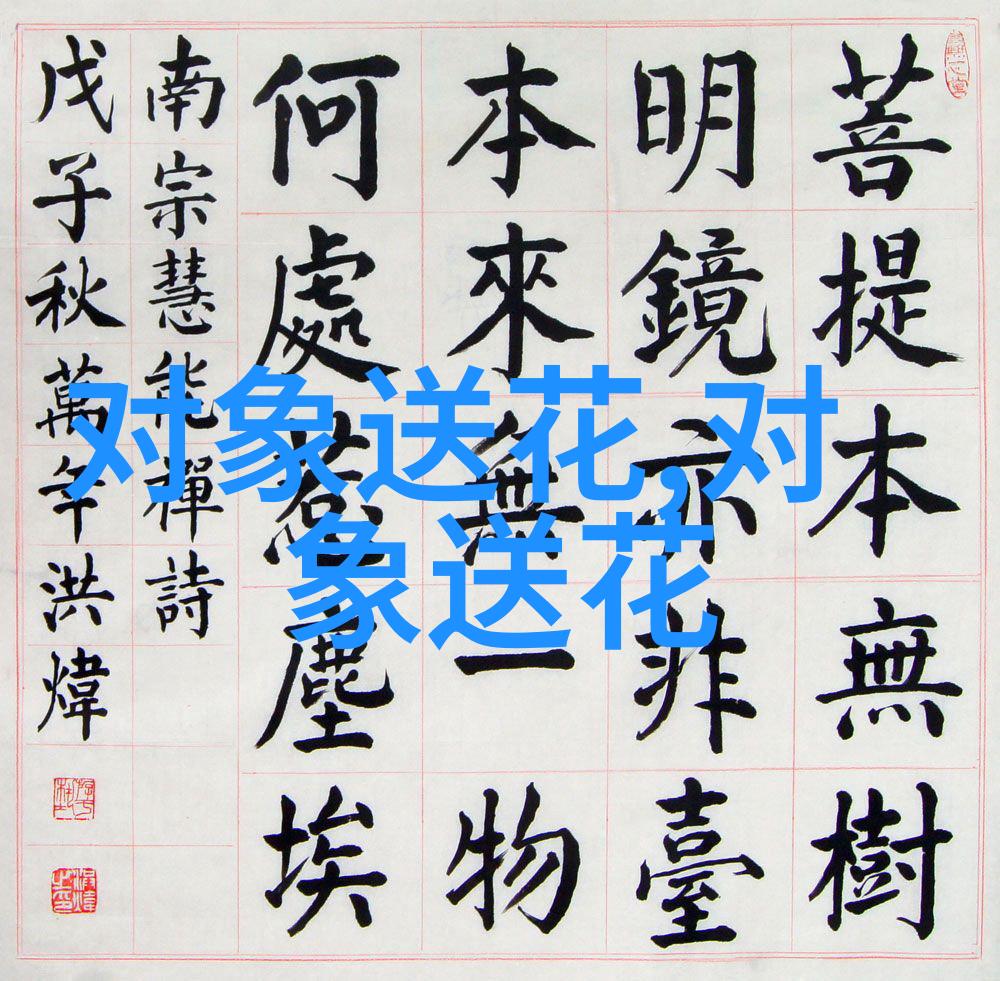 菩提本無樹
明鏡亦非臺
本來無一物
何處惹塵埃
南宗慧能禪詩
戊子秋萬年洪煒
对象送花,对
象送花